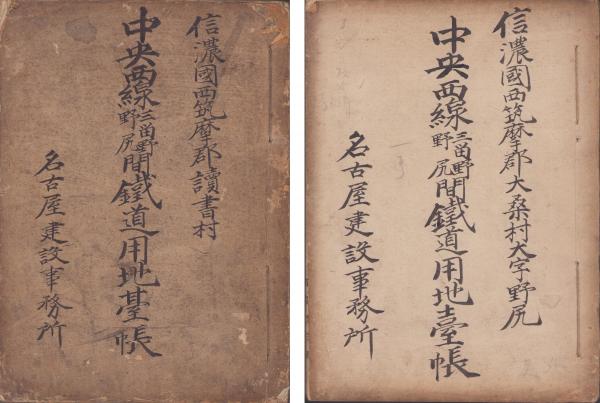 信濃國西筑摩郡讀書村
中央西線三留野野尻間鐵道用地臺帳
名古屋建設事務所
信濃國西筑摩郡大桑村大字野尻
中央西線三留野野尻間鐵道用地臺帳
名古屋建設事務所